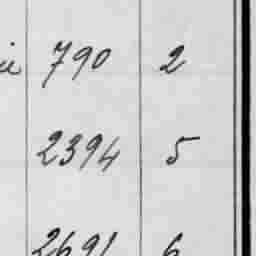 790 2
2394 5
2691 6